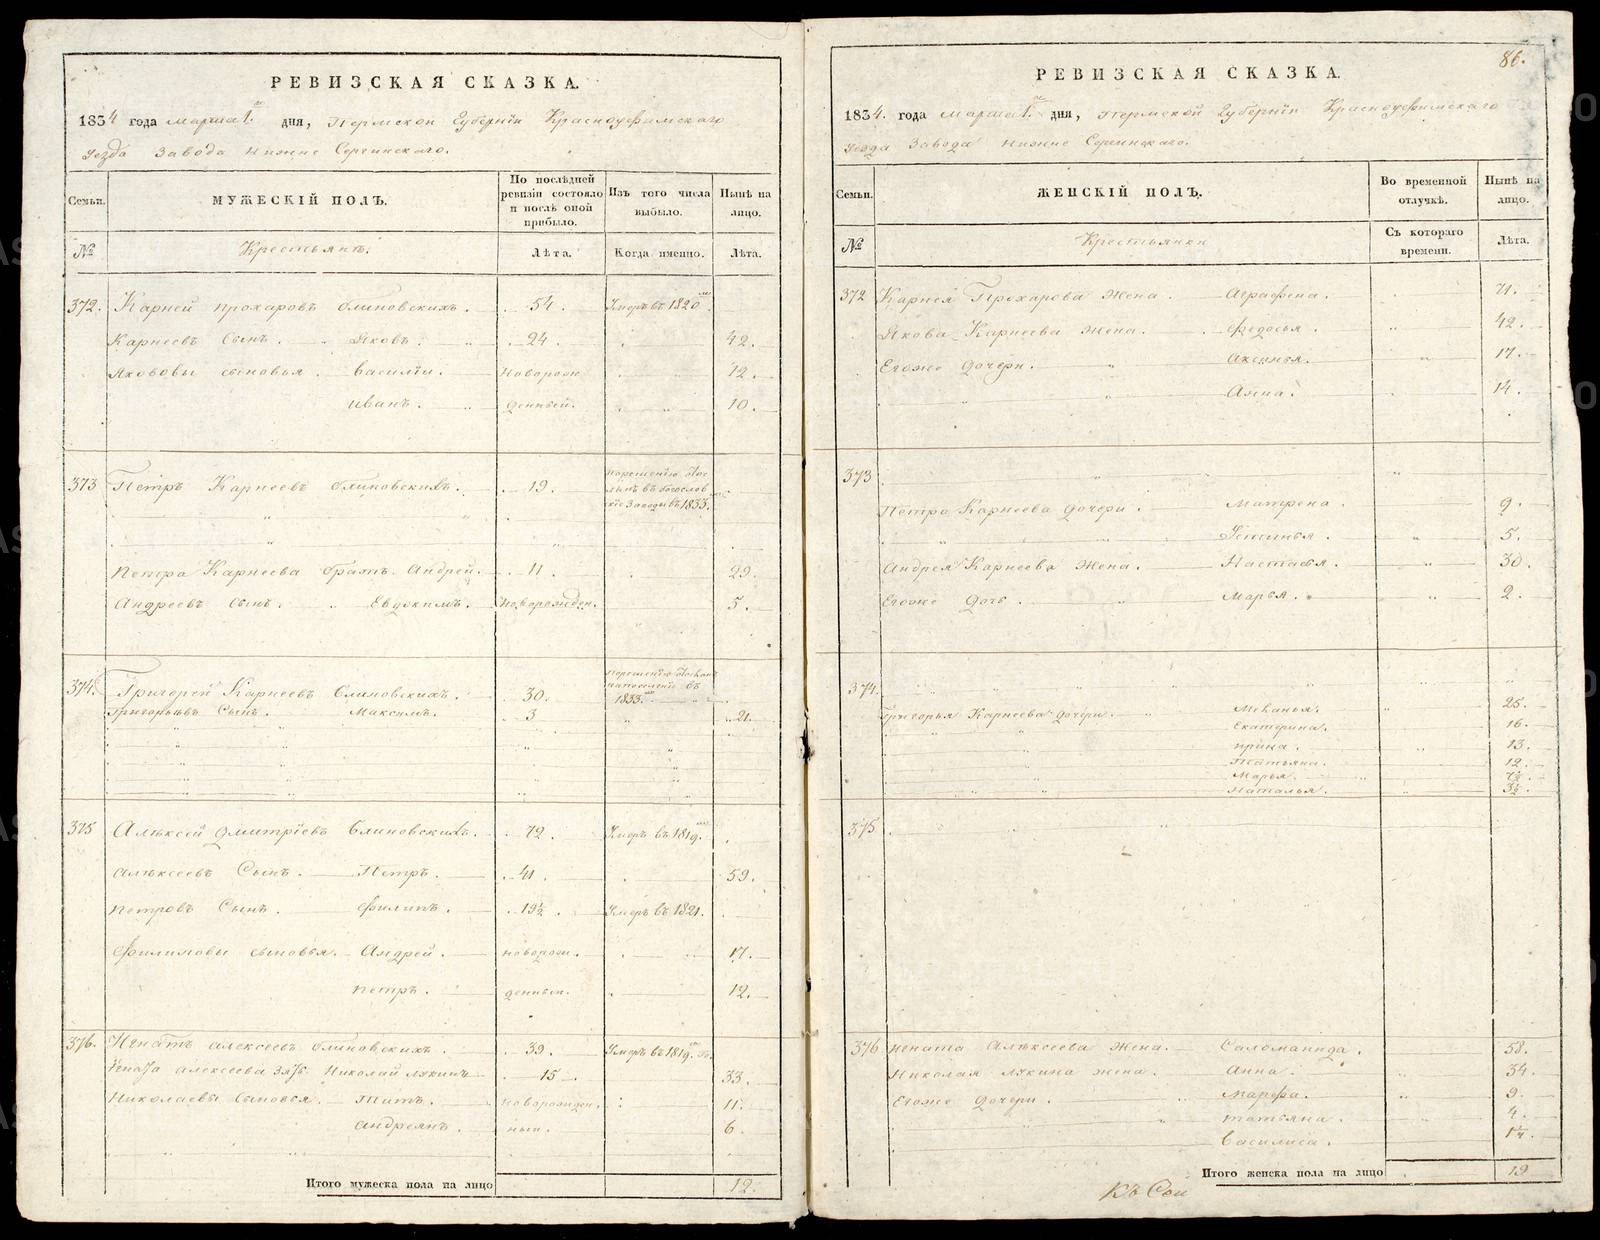 РЕВИЗСКАЯ СКАЗКА.
1834 года марта 1. дня, Пермской Губернїи Красноуфимскаго
Уезда Завода Нижне Сергинскаго.
Семьи.
МУЖЕСКІЙ ПОЛЪ.
По послѣдней ревизіи состояло и послѣ оной прибыло.
Изъ того числа выбыло.
Нынѣ на лицо.
№
Крестьянъ.
Лѣта.
Когда именно.
Лѣта.
372. Карней Прохаровъ Блиновскихъ. 54. Умеръ въ 1820
Карнеевъ Сынъ. Яковъ. 24. 42.
Якововы сыновья. Василїи. Новорож 12.
Иванъ. денный. 10.
373 Петръ Карнеевъ Блиновскихъ. 19. Порешенїю
въ Богослов
скїе Заводы въ 1833.
Петра Карнеева братъ. Андрей. 11. 29.
Андреевъ Сынъ. Евдокимъ. Новорожден. 5.
374. Григорей Карнеевъ Блиновскихъ. 30. Порешенїю
напоселенїе въ
1833.
Григорьевъ Сынъ. Максимъ. 3 21.
375 Алѣксей Дмитрїевъ Блиновскихъ. 72. Умеръ въ 1819.
Алѣксеевъ Сынъ. Петръ. 41. 59.
Петровъ Сынъ. Филипъ. 19½. Умеръ въ 1821.
Филиповы сыновья. Андрей. новорож. 17.
Петръ. денныи. 12.
376. Игнатъ Алексеевъ Блиновскихъ. 39. Умеръ въ 1819.
Игната Алексеева зять Николай Лукинъ 15. 33.
Николаевы Сыновья. Титъ. Новорожден. 11.
Андреянъ. ныи. 6.
Итого мужеска пола на лицо 12.
86.
РЕВИЗСКАЯ СКАЗКА.
1834. года марта 1. дня, Пермской Губернїи Красноуфимскаго
Уезда Завода Нижне Сергинскаго.
Семьи.
ЖЕНСКІЙ ПОЛЪ.
Во временной отлучкѣ.
Нынѣ на лицо.
№
Крестьянки
Съ котораго времени.
Лѣта.
372 Карнея Прохарова Жена. Аграфена. 71.
Якова Карнеева Жена. Федосья. 42.
Егоже Дочери. Аксинья. 17.
Анна. 14.
373
Петра Карнеева Дочери. Матрена. 9.
Устинья. 5.
Андрея Карнеева Жена. Настасья. 30.
Егоже Дочь. Марья. 2.
374.
Григорья Карнеева Дочери. Меланья. 25.
Екатерина. 16.
Ирина. 13.
Татьяна. 12.
Марья.
Наталья. 3½.
375
376 Игната Алѣксеева Жена. Саломанида. 58.
Николая Лукина жена. Анна. 34.
Егоже Дочери. Марфа. 9.
Татьяна. 4.
Василиса.
Итого женска пола на лицо 19
Къ Сей